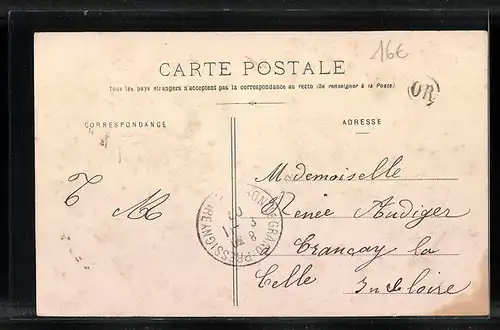 16€
CARTE POSTALE
Tous les pays étrangers n'acceptent pas la correspondance au recto (Se renseigner à la Poste)
OR
CORRESPONDANCE
ADRESSE
Mademoiselle
Renée Audiger
Trançay la
Celle
In et Loire
T M
GRAND-PRESSIGNY